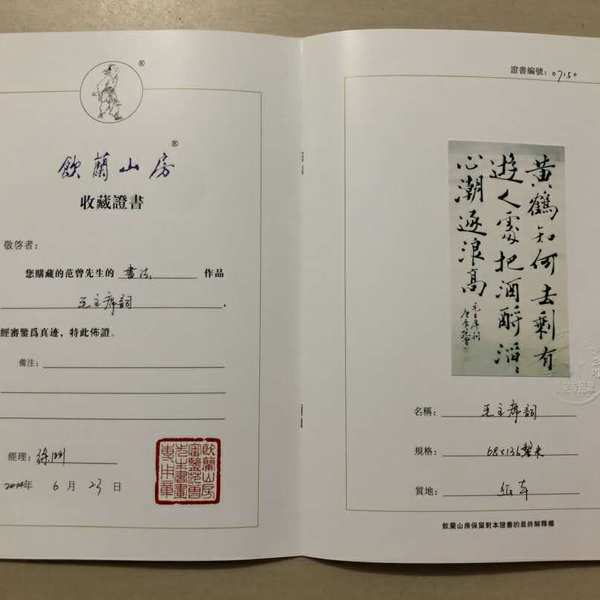 ®
飲蘭山房®
收藏證書
敬啓者：
您購藏的范曾先生的 書法 作品
毛主席詞 ，
經審鑒爲真迹，特此佈證。
備注：
經理：
2014年 6 月 23 日
證書編號：0750
黃鶴知何去剩有
遊人處把酒酹滔〻
心潮逐浪高
毛主席詞
名稱： 毛主席詞
規格： 68×136釐米
質地： 紙本
飲蘭山房保留對本證書的最終解釋權